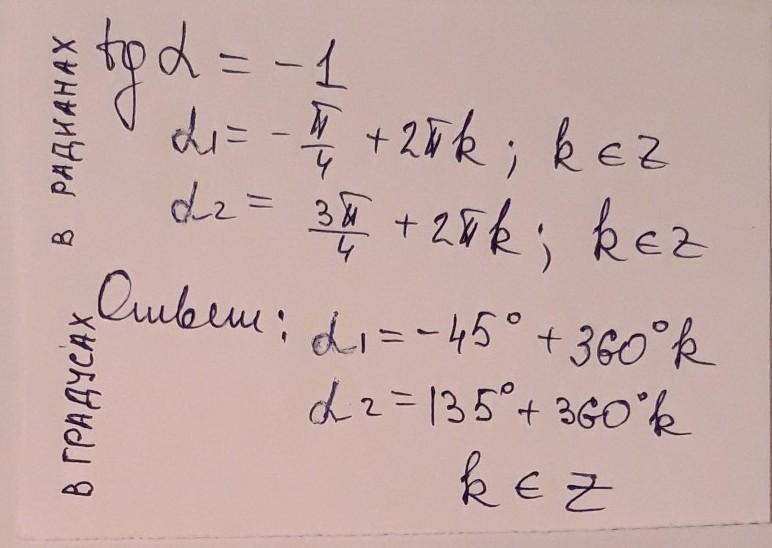 В РАДИАНАХ
tg α = -1
α1 = -π/4 + 2πk ; k ∈ Z
α2 = 3π/4 + 2πk ; k ∈ Z
В ГРАДУСАХ
Ответ: α1 = -45° + 360°k
α2 = 135° + 360°k
k ∈ Z